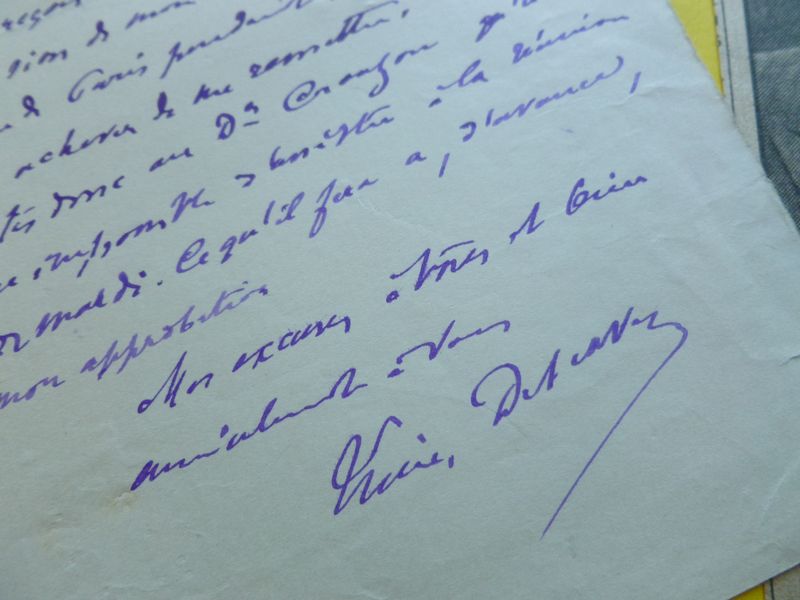 sion de mon
de Paris pendant
achever de me remettre.
donc au Dr Crouzon qu'il
impossible d'assister à la réunion
mardi. Ce qu'il fera a, d'avance,
mon approbation
Mes excuses à tous et bien
amicalement à vous
Lucien Descaves